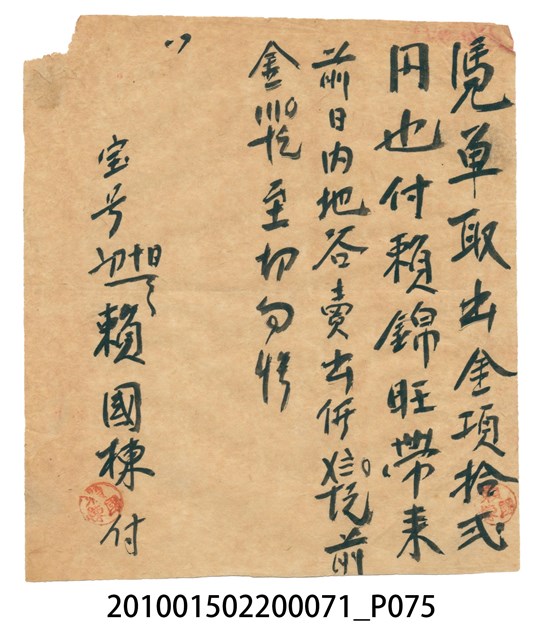 憑單取出金項拾弍
円也付賴錦旺帶来
前日内地谷賣出伻 前
金 至切勿悮
宝号 賴國棟付
201001502200071_P075